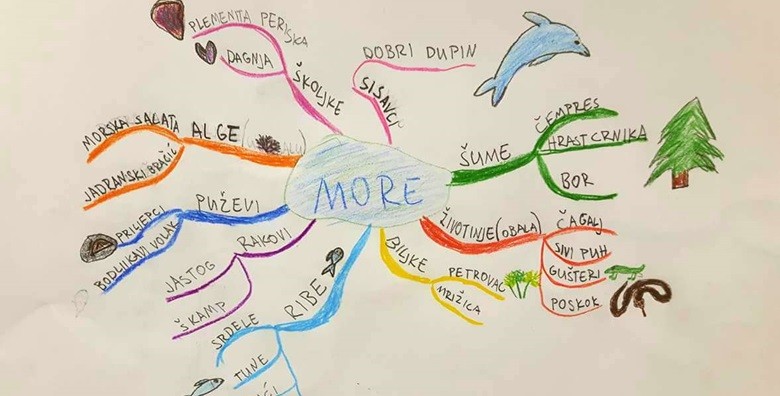 PLEMENITA PERISKA
DAGNJA
ŠKOLJKE
DOBRI DUPIN
SISAVCI
ČEMPRES
HRAST CRNIKA
BOR
ŠUME
MORSKA SALATA
JADRANSKI BRAČIĆ
ALGE
MORE
PUŽEVI
PRILJEPCI
BODLJIKAVI VOLAK
RAKOVI
JASTOG
ŠKAMP
RIBE
SRDELE
TUNE
BILJKE
PETROVAC
MRIŽICA
ŽIVOTINJE (OBALA)
ČAGALJ
SIVI PUH
GUŠTERI
POSKOK